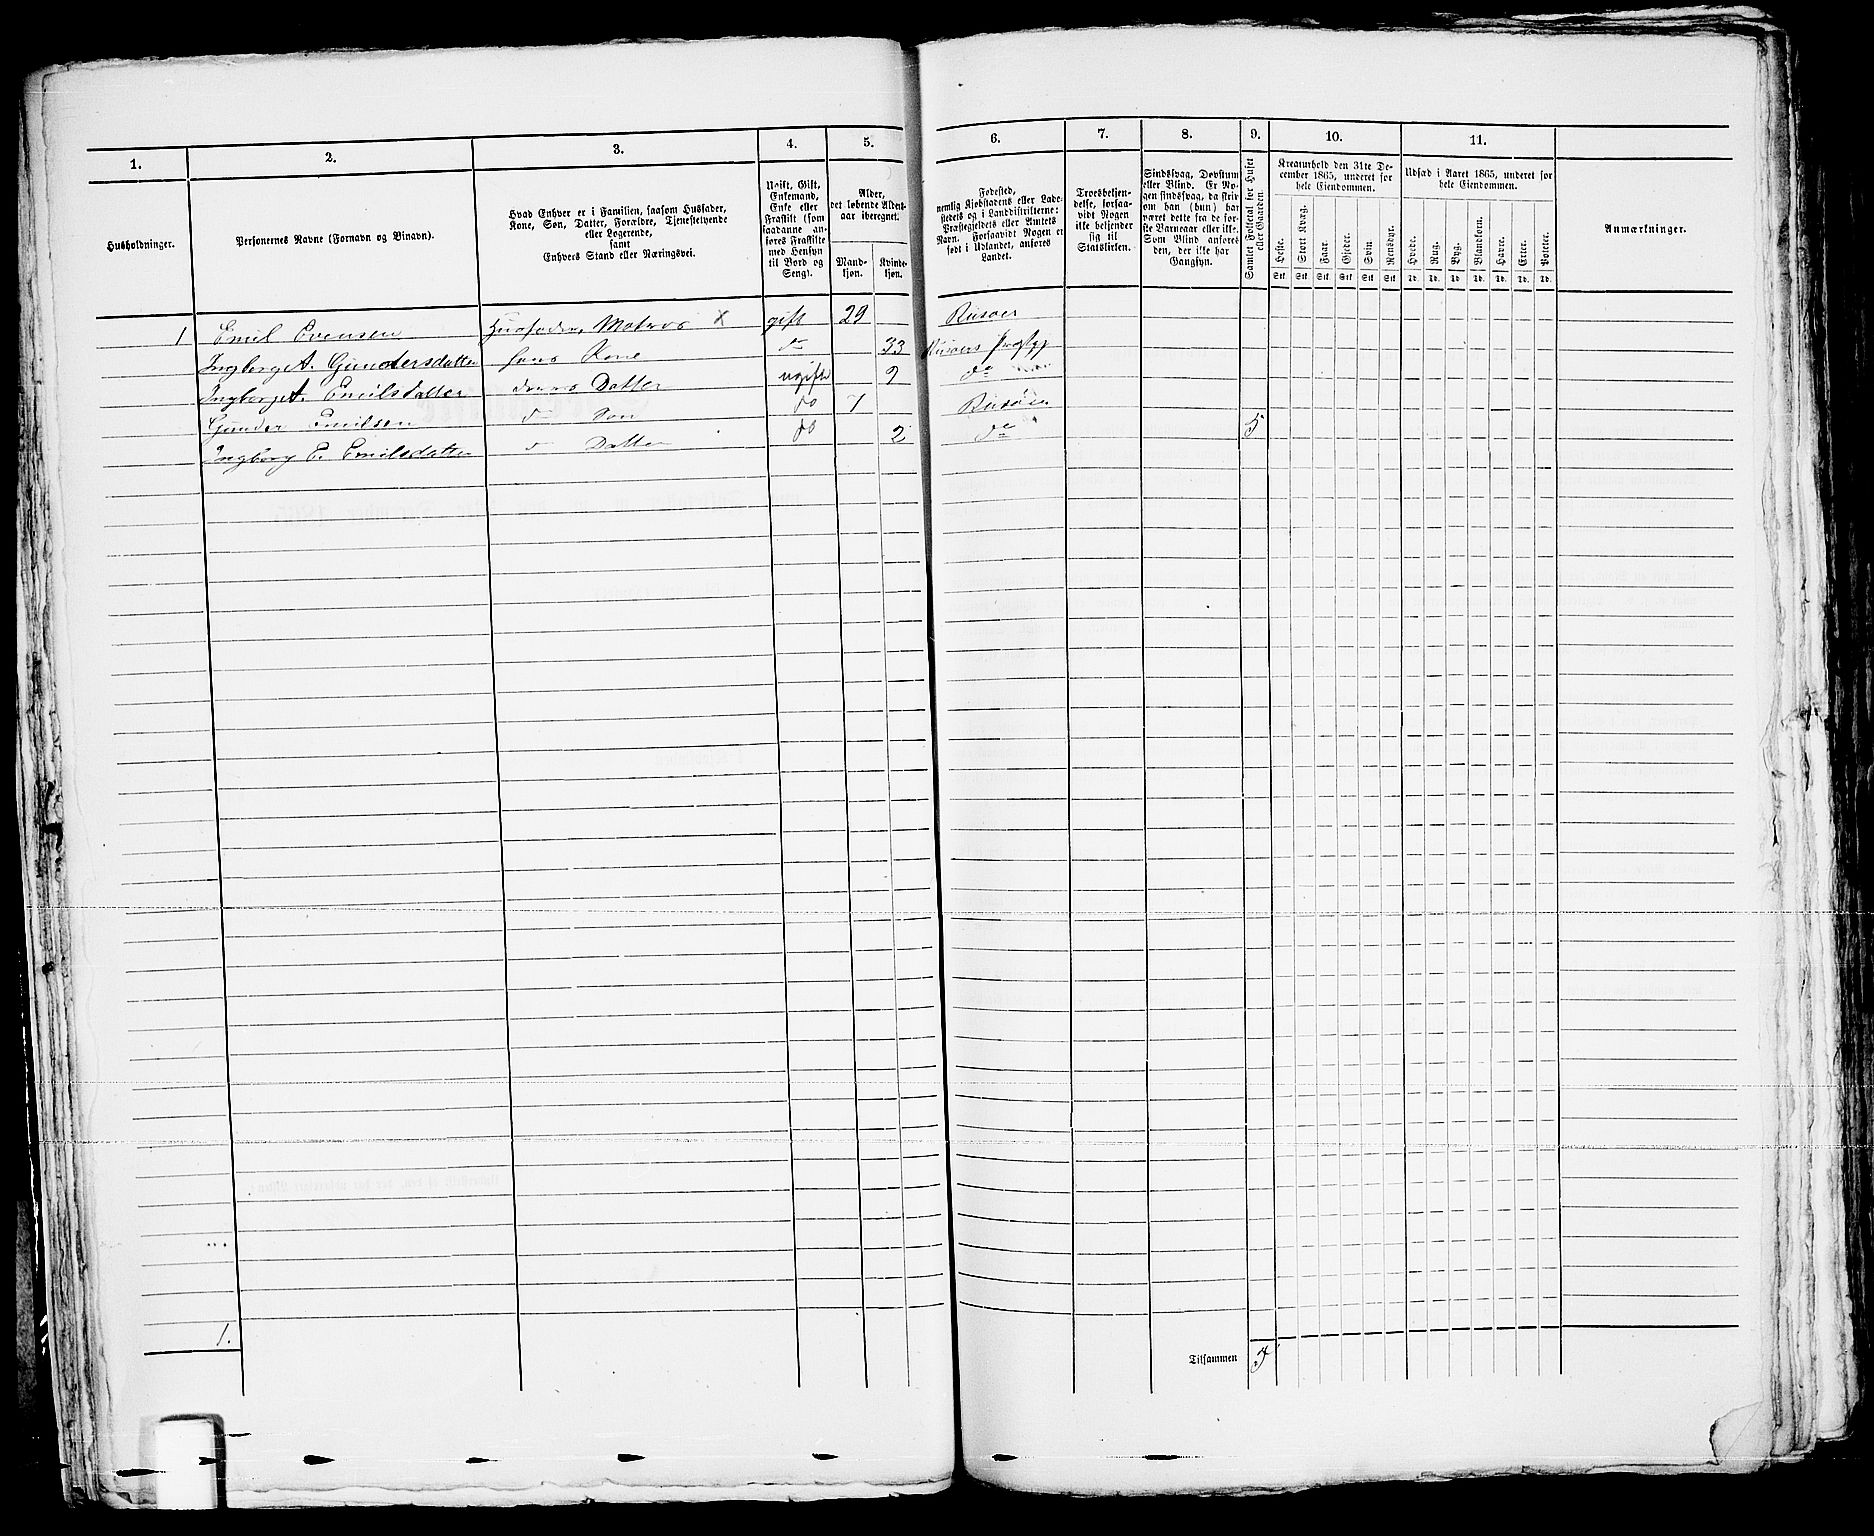 1.
2.
3.
4.
5.
6.
7.
8.
9.
10.
11.
Husholdninger.
Personernes Navne (Fornavn og Binavn).
Hvad Enhver er i Familien, saasom Husfader,
Kone, Søn, Datter, Forældre, Tjenestetyende
eller Logerende,
samt
Enhvers Stand eller Næringsvei.
Ugift, Gift,
Enkemand,
Enke eller
Fraskilt (som
saadanne an-
føres Fraskilte
med Hensyn
til Bord og
Seng).
Alder,
det løbende Alders-
aar iberegnet.
Mand-
kjøn.
Kvinde-
kjøn.
Fødested,
nemlig Kjøbstadens eller Lade-
stedets og i Landdistrikterne:
Præstegjeldets eller Amtets
Navn. Forsaavidt Nogen er
født i Udlandet, anføres
Landet.
Troesbekjen-
delse, forsaa-
vidt Nogen
ikke bekjender
sig til
Statskirken.
Sindssvag, Døvstum
eller Blind. Er No-
gen sindssvag, da skriv
om han (hun) har
været dette fra de før-
ste Barneaar eller ikke.
Som Blind anføres
den, der ikke har
Gangsyn.
Samlet Folketal for Huset
eller Gaarden.
Kreaturhold den 31te De-
cember 1865, underet for
hele Eiendommen.
Heste.
Stort Kvæg.
Faar.
Gjeder.
Svin
Rensdyr.
Stk. Stk. Stk. Stk. Stk. Stk.
Udsæd i Aaret 1865, underet for
hele Eiendommen.
Hvede.
Rug.
Byg.
Blandkorn.
Havre.
Erter.
Poteter.
Td. Td. Td. Td. Td. Td. Td.
Anmærkninger.
1 Emil Evensen Husfader, Matros X gift 29 Risøer
Ingborg A. Gundersdatter hans Kone do 33 Risøers Præstgj
Ingborg A. Emilsdatter deres Datter ugift 9 do
Gunder Emilsen do Søn do 7 Risøer
Ingborg E. Emilsdatter do Datter do 2 do 5
1.
Tilsammen 5